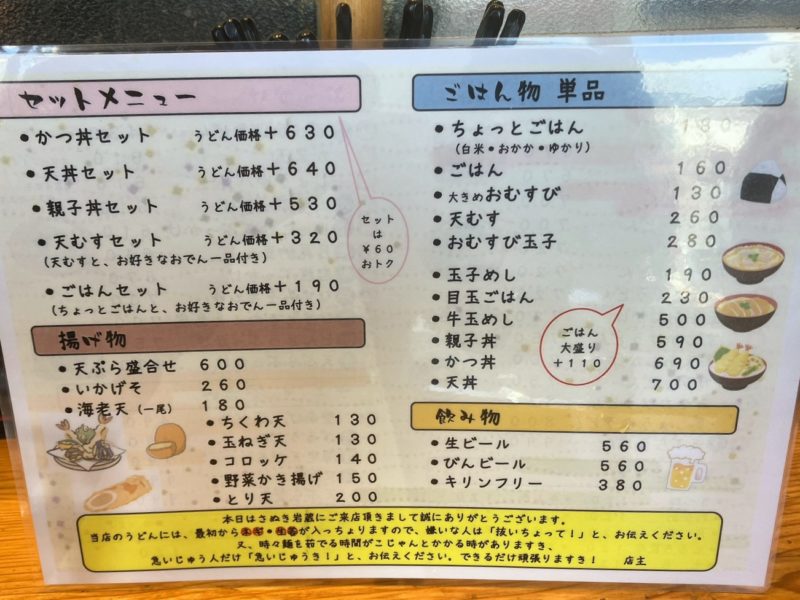 セットメニュー
•かつ丼セット うどん価格+630
•天丼セット うどん価格+640
•親子丼セット うどん価格+530
•天むすセット うどん価格+320
(天むすと、お好きなおでん一品付き)
•ごはんセット うどん価格+190
(ちょっとごはんと、お好きなおでん一品付き)
セット
は
¥60
おトク
揚げ物
•天ぷら盛合せ 600
•いかげそ 260
•海老天(一尾) 180
•ちくわ天 130
•玉ねぎ天 130
•コロッケ 140
•野菜かき揚げ 150
•とり天 200
ごはん物 単品
•ちょっとごはん 130
(白米•おかか•ゆかり)
•ごはん 160
•大きめおむすび 130
•天むす 260
•おむすび玉子 280
•玉子めし 190
•目玉ごはん 230
•牛玉めし 500
•親子丼 590
•かつ丼 690
•天丼 700
ごはん
大盛り
+110
飲み物
•生ビール 560
•びんビール 560
•キリンフリー 380
本日はさぬき岩蔵にご来店頂きまして誠にありがとうございます。
当店のうどんには、最初からネギ•生姜が入っちょりますので、嫌いな人は「抜いちょって!」と、お伝えください。
又、時々麺を茹でる時間がこじゃんとかかる時がありますき、
急いじゅう人だけ「急いじゅうき!」と、お伝えください。できるだけ頑張りますき! 店主